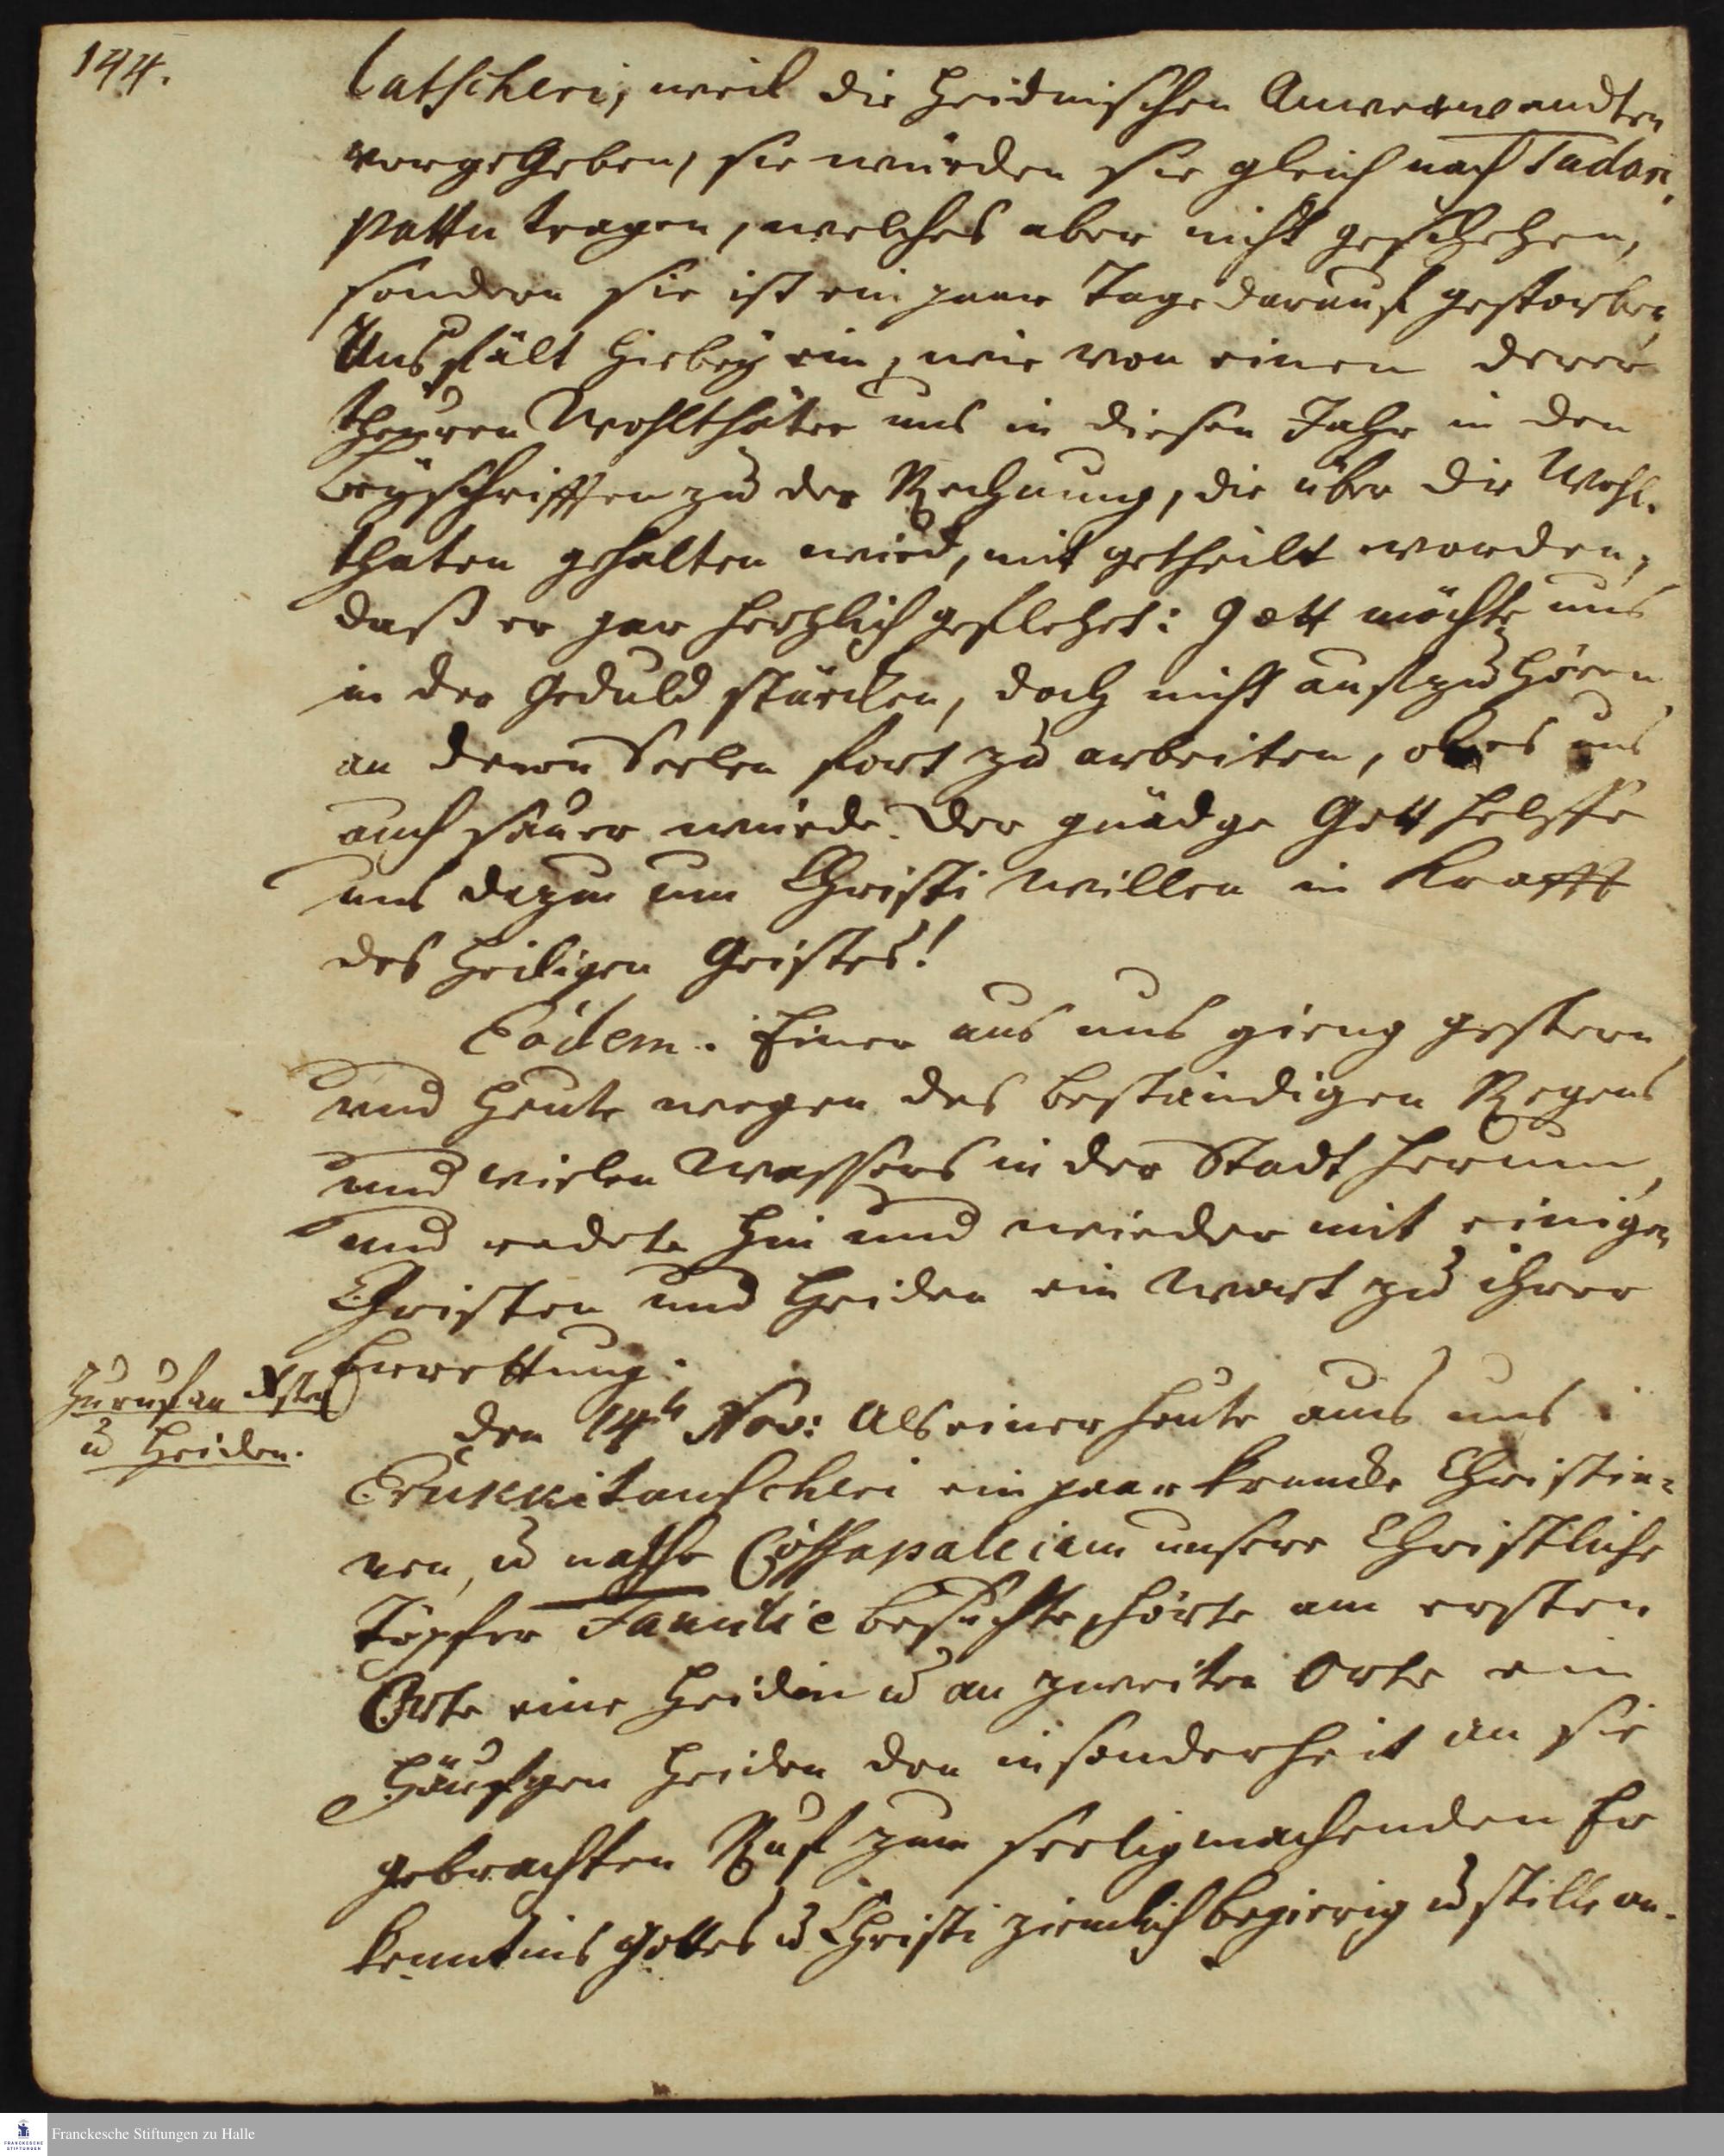 144.
latscheri, weil die Heidnischen Anverwandten
vorgegeben, sie würden sie gleich nach Tudari,
pattu tragen, welches aber nicht geschehen,
sondern sie ist ein paar Tage darauf gestorben
Uns fält hiebey ein, wie von einen derer
theuren Wohlthäter uns in diesen Jahr in den
Beyschrifften zu der Rechnung, die über die Wohl-
thaten gehalten wird, mit getheilt worden,
daß er gar hertzlich geflehet: Gott möchte uns
in der Geduld stärcken, doch nicht aufzuhören
an deren Seelen fort zu arbeiten, ob es uns
auch sauer würde. Der gnädge Gott helffe
uns dazu um Christi willen in Krafft
des Heiligen Geistes!
Eodem. Einer aus uns gieng gestern
und heute wegen des beständigen Regens
und vielen Wassers in der Stadt herum,
und redete hin und wieder mit einigen
Christen und Heiden ein Wort zu ihrer
Errettung.
Zuruf an Xsten
u Heiden.
Den 14ten Nov: Als einer heute aus uns i
Erukkitanscheri ein paar krancke Christin-
nen, u nahe unsere Christliche
Töpfer Familie besuchte, hörte am ersten
Orte eine Heidin u an zweiten Orte ein
Häufgen Heiden den insonderheit an sie
gebrachten Ruf zum seeligmachenden Er
kenntnis Gottes u Christi ziemlich begierig u stille an.
Franckesche Stiftungen zu Halle